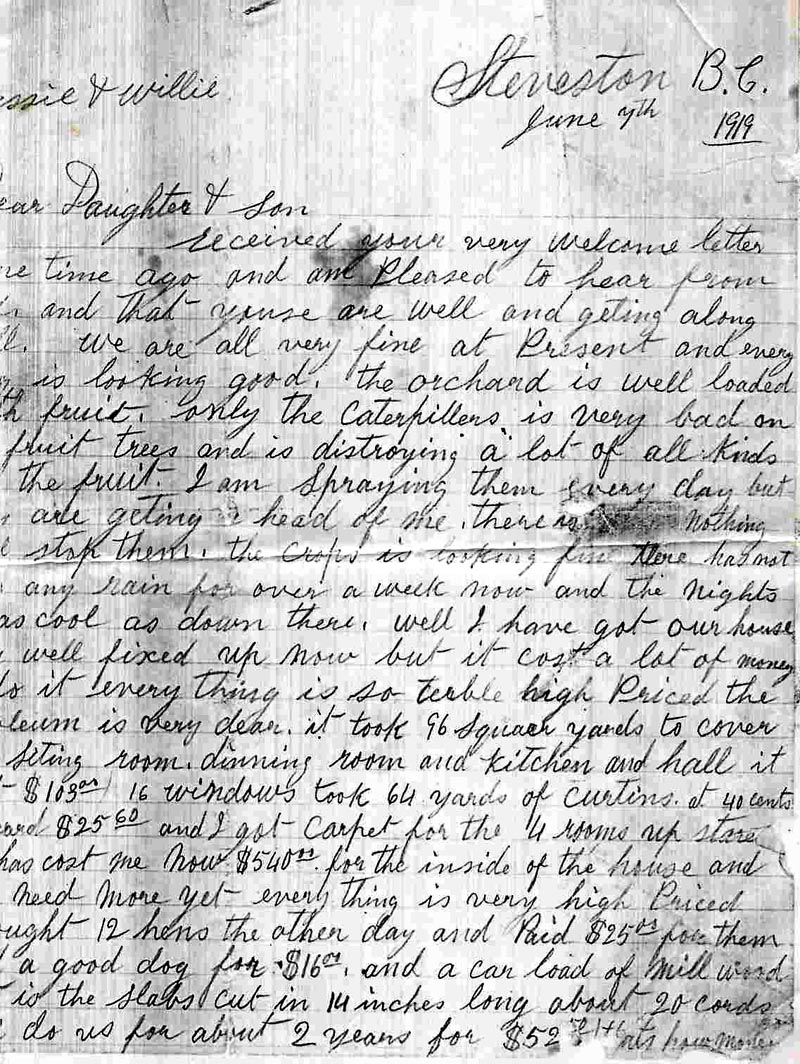 Steveston B.C.
essie & Willie
June 7th 1919
ear Daughter & Son
received your very welcome letter
me time ago and am Pleased to hear from
and that youse are well and geting along
ll. we are all very fine at Present and every
is looking good. the orchard is well loaded
th fruit. only the Caterpillers is very bad on
fruit trees and is distroying a lot of all kinds
the fruit. I am Spraying them every day but
are geting a head of me. there is Nothing
stop them. the crops is looking fine there has not
any rain for over a week now and the Nights
as cool as down there. well I have got our house
well fixed up now but it cost a lot of money
do it every thing is so terble high Priced the
oleum is very dear. it took 96 Squaer yards to cover
siting room. dinning room and kitchen and hall it
$103.00 16 windows took 64 yards of curtins. at 40 cents
yard $25.60 and I got Carpet for the 4 rooms up stares
has cost me Now $540.00 for the inside of the house and
need More yet every thing is very high Priced
ought 12 hens the other day and Paid $25.00 for them
a good dog for $16.00. and a car load of Mill wood
is the slabs cut in 14 inches long about 20 cords
do us for about 2 years for $52 ats how money